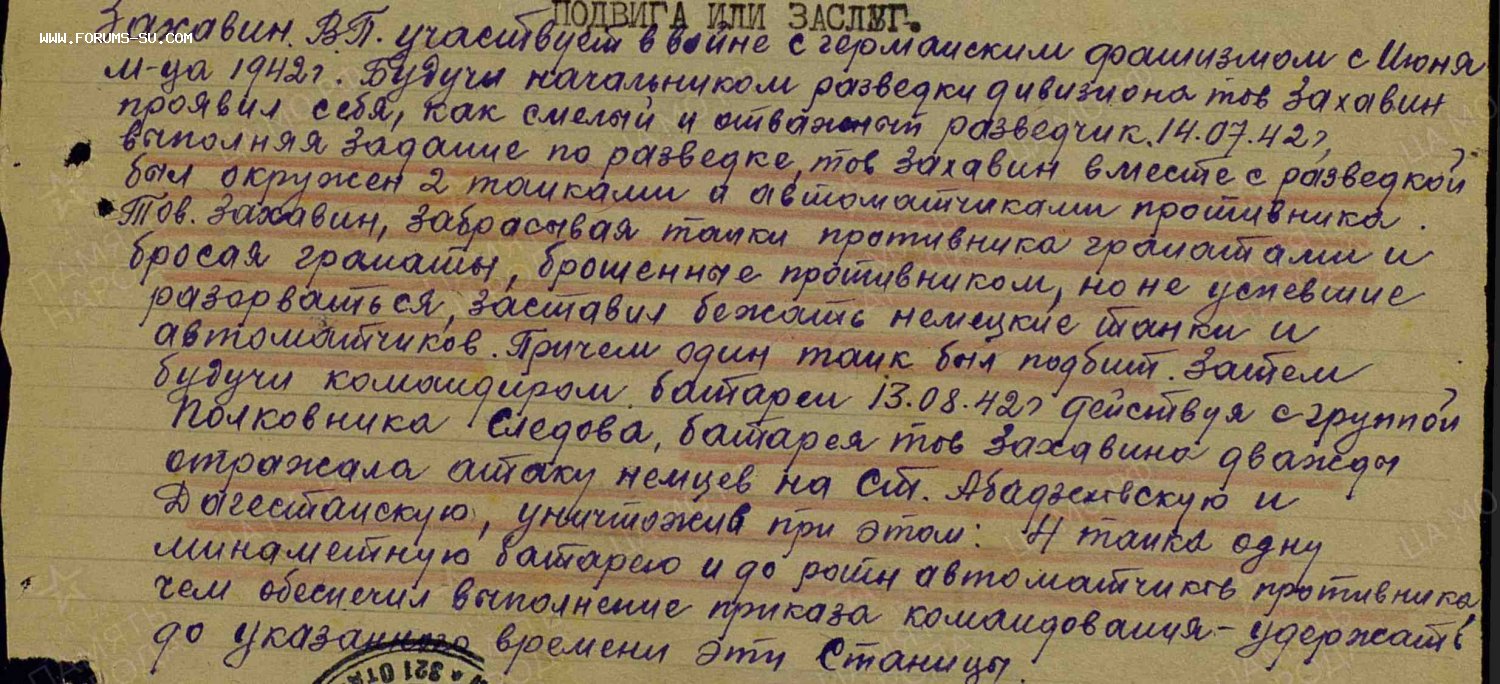 ПОДВИГА ИЛИ ЗАСЛУГ.
WWW.FORUMS-SU.COM
Захавин. В.П. участвует в войне с германским фашизмом с Июня
м-ца 1942г. Будучи начальником разведки дивизиона тов Захавин
проявил себя, как смелый и отважный разведчик. 14.07.42г,
выполняя задание по разведке, тов Захавин вместе с разведкой
был окружен 2 танками и автоматчиками противника.
Тов. Захавин, забрасывая танки противника гранатами и
бросая гранаты, брошенные противником, но не успевшие
разорваться, заставил бежать немецкие танки и
автоматчиков. Причем один танк был подбит. Затем
будучи командиром батареи 13.08.42г действуя с группой
Полковника Следова, батарея тов Захавина дважды
отражала атаку немцев на Ст. Абадзеховскую и
Дагестанскую, уничтожив при этом: 4 танка одну
минаметную батарею и до роты автоматчиков противника,
чем обеспечил выполнение приказа командования - удержать
до указанного времени эти Станицы.
321 ОТД